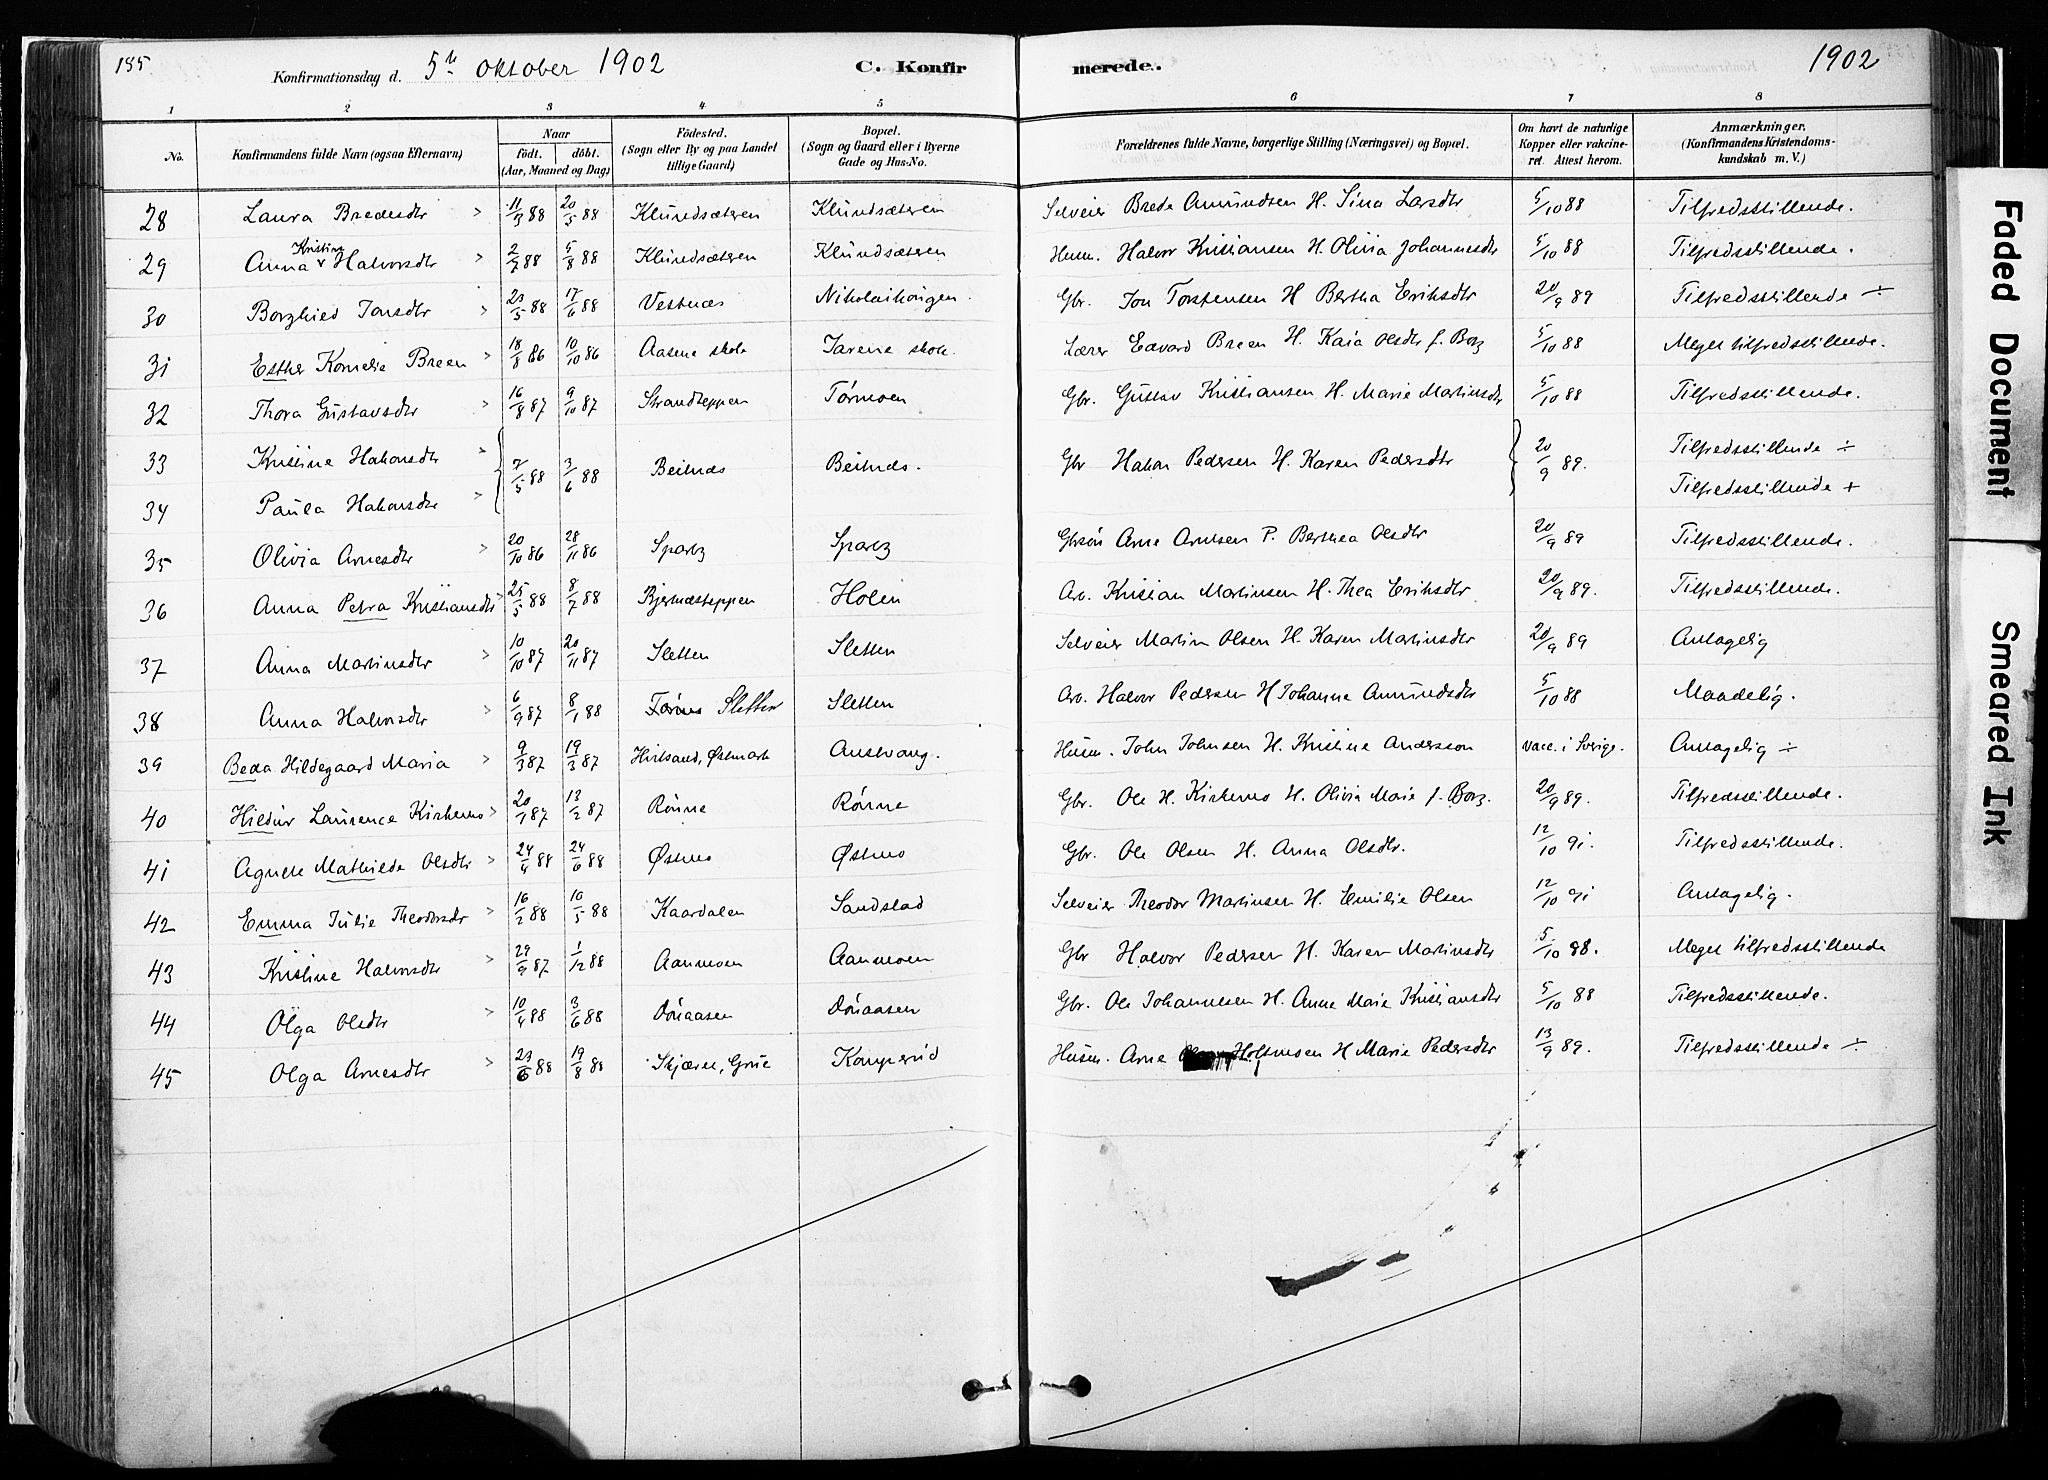 185
Konfirmationsdag d. 5te Oktober 1902
C. Konfirmerede.
1902
1 2 3 4 5 6 7 8
No. Konfirmandens fulde Navn (ogsaa Efternavn) Naar født. døbt. (Aar, Maaned og Dag) Födested. (Sogn eller By og paa Landet tillige Gaard) Bopæl. (Sogn og Gaard eller i Byerne Gade og Hus-No. Forældrenes fulde Navne, borgerlige Stilling (Næringsvei) og Bopæl. Om havt de naturlige Kopper eller vakcineret. Attest herom. Anmærkninger. (Konfirmandens Kristendomskundskab m. V.)
28 Laura Bredesdtr 11/3 88 20/5 88 Klundsæteren Klundsæteren Selveier Brede Amundsen H. Sina Larsdtr 5/10 88 Tilfredsstillende.
29 Anna Kristine Halvorsdtr 2/7 88 5/8 88 Klundsæteren Klundsæteren Husm. Halvor Kristiansen H. Olivia Johannesdtr 5/10 88 Tilfredsstillende.
30 Borghild Jonsdtr 23/5 88 17/6 88 Vestnæs Nikolaihaugen. Gbr. Jon Torstensen H Bertha Eriksdtr 20/9 89 Tilfredsstillende ÷
31 Esther Kornelie Breen 18/8 86 10/10 86 Aasene skole Jarene skole. Lærer Edvard Breen H. Kaia Olsdtr f. Borg 5/10 88 Meget tilfredsstillende.
32 Thora Gustavsdtr 16/8 87 9/10 87 Strandteppen Tørmoen Gbr. Gustav Kristiansen H. Marie Martinsdtr 5/10 88 Tilfredsstillende.
33 Kristine Hakonsdtr 7/5 88 3/6 88 Beitnæs Beitnæs. Gbr Hakon Pedersen H. Karen Pedersdtr 20/9 89. Tilfredsstillende ÷
34 Paula Hakonsdtr Tilfredsstillende +
35 Olivia Arnesdtr 20/10 86 28/11 86 Sparby Sparby Gbrsøn Arne Arnesen P. Berthea Olsdtr 20/9 89 Tilfredsstillende.
36 Anna Petra Kristiansdtr 25/5 88 8/7 88 Bjernæsteppen Holen Arb. Kristian Martinsen H. Thea Eriksdtr 20/9 89. Tilfredsstillende.
37 Anna Martinsdtr 10/10 87 20/11 87 Sletten Sletten Selveier Martin Olsen H. Karen Martinsdtr 20/9 89 Antagelig
38 Anna Halvorsdtr 6/9 87 8/1 88 Sletten Sletten Arb. Halvor Pedersen H Johanne Amundsdtr 5/10 88 Maadelig.
39 Beda Hildegaard Maria 9/3 87 19/3 87 Hvitsand, Östmark Austvang. Husm. John Johnsen H. Kristine Andersson Vacc. i Sverige. Antagelig ÷
40 Hildur Laurence Kirkemo 20/1 87 13/2 87 Rønne Rønne Gbr. Ole H. Kirkemo H. Olivia Marie f. Borg. 20/9 89. Tilfredsstillende.
41 Agnete Mathilde Olsdtr 24/4 88 24/6 88 Østmo Østmo Gbr. Ole Olsen H. Anna Olsdtr. 12/10 91. Tilfredsstillende.
42 Emma Julie Theodorsdr 16/2 88 10/5 88 Kaardalen Sandstad Selveier Theodor Martinsen H. Emilie Olsen 12/10 91 Antagelig.
43 Kristine Halvorsdtr 29/9 87 1/12 88 Aanmoen Aanmoen Gbr Halvor Pedersen H. Karen Martinsdtr 5/10 88. Meget tilfredsstillende
44 Olga Olsdtr 10/4 88 3/6 88 Döraasen Döraasen Gbr. Ole Johannesen H. Anne Marie Kristiansdtr 5/10 88 Tilfredsstillende.
45 Olga Arnesdtr 23/6 88 19/8 88 Skjæret, Grue Kamperud Husm. Arne Holtmoen H Marie Pedersdtr 13/9 89. Tilfredsstillende ÷
Faded Document
Smeared Ink